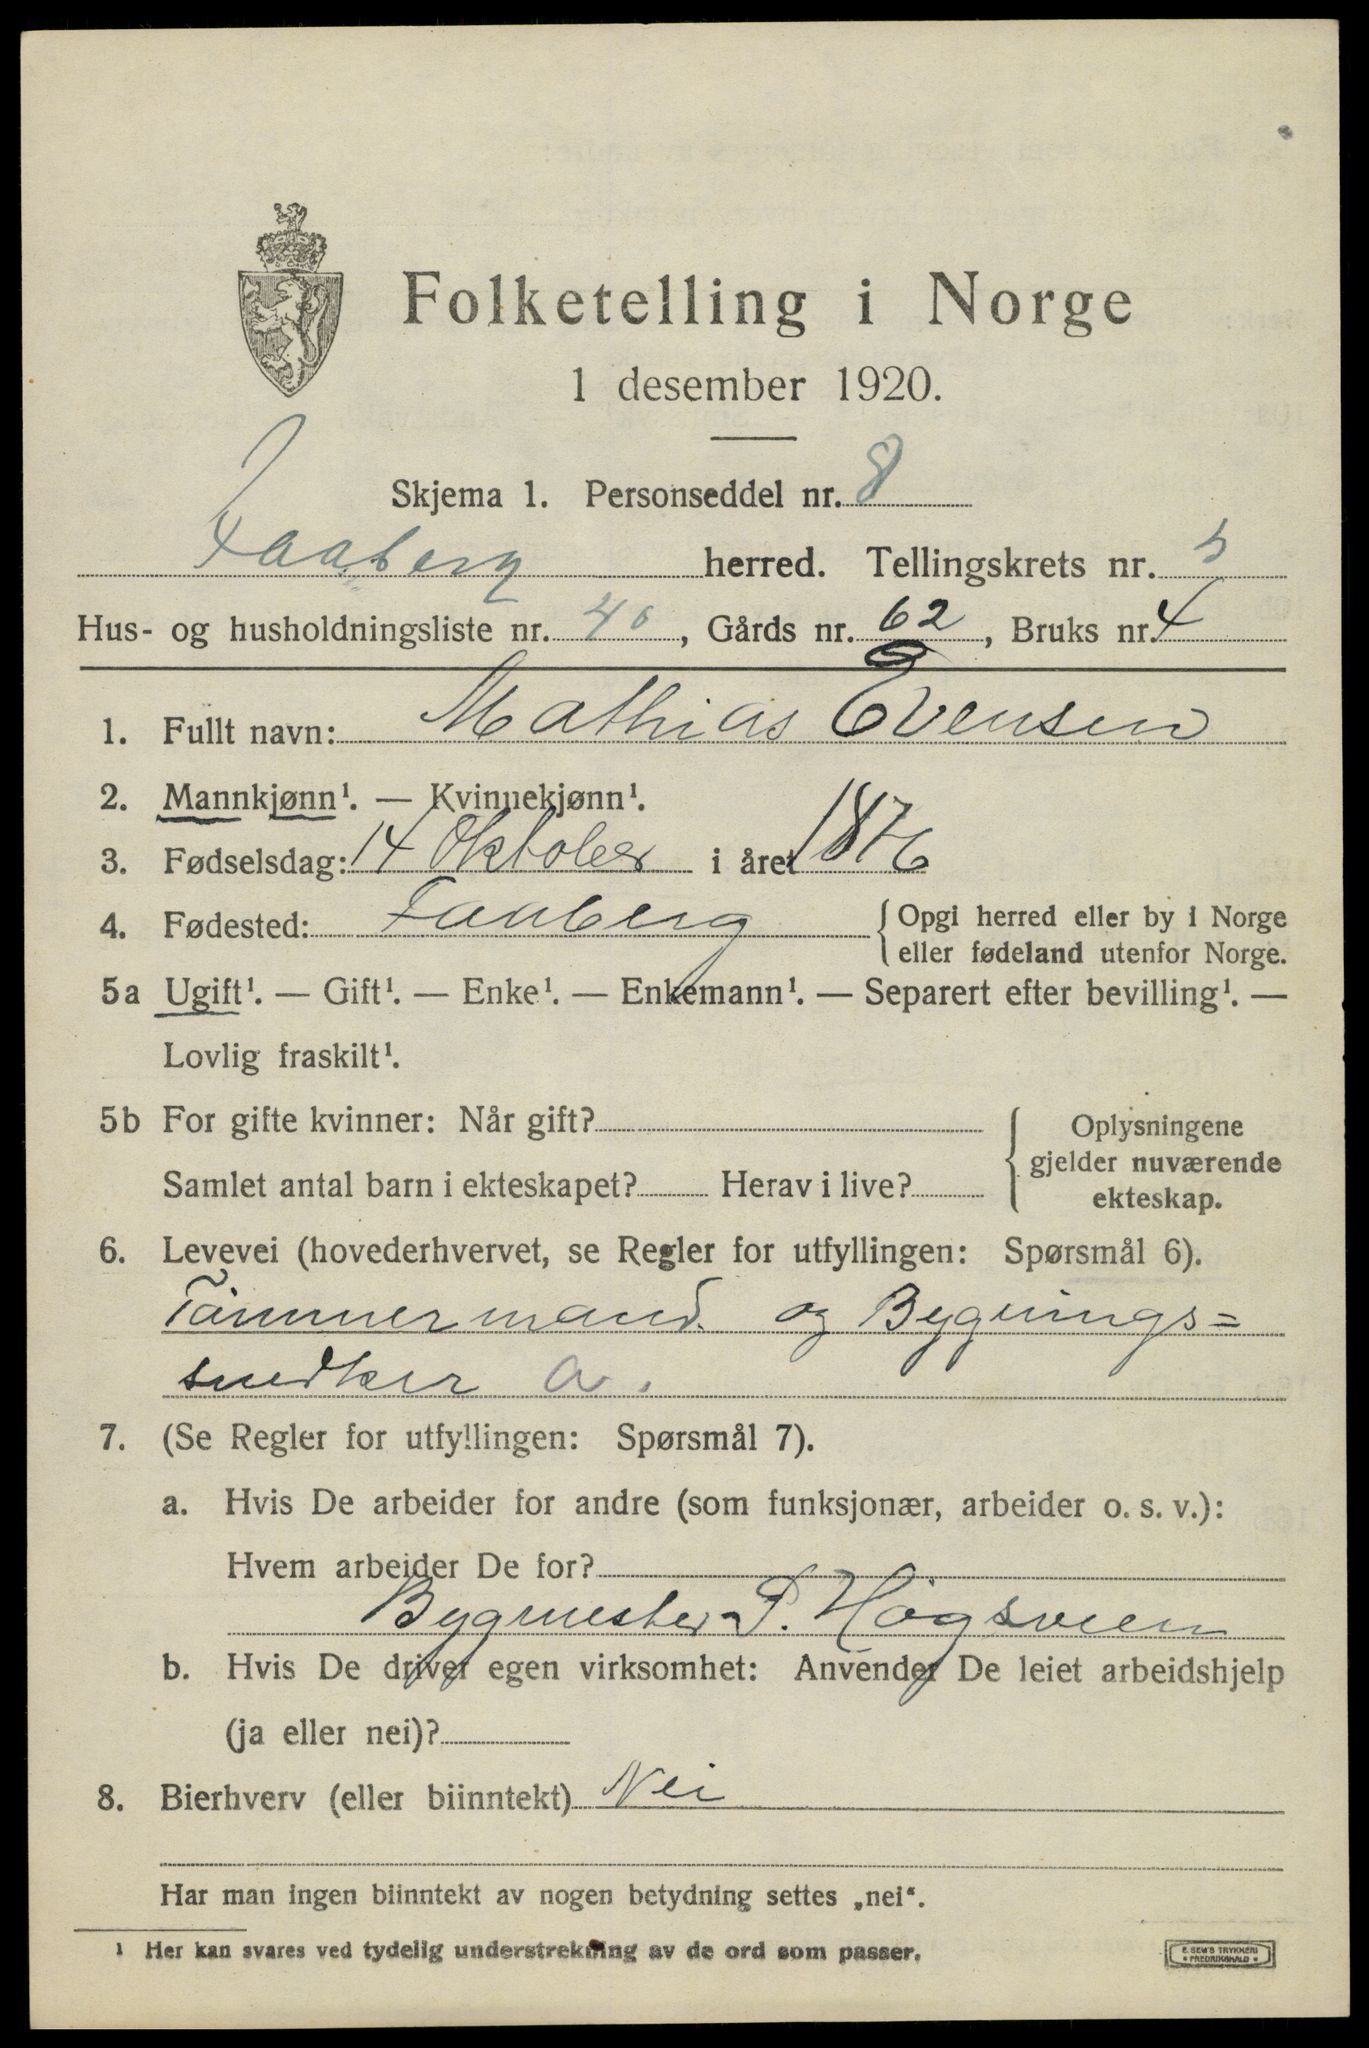 Folketelling i Norge
1 desember 1920.
Skjema 1. Personseddel nr. 8
Faaberg herred. Tellingskrets nr. 5
Hus- og husholdningsliste nr. 40, Gårds nr. 62, Bruks nr. 4
1. Fullt navn: Mathias Evensen
2. Mannkjønn¹. — Kvinnekjønn¹.
3. Fødselsdag: 14 Oktober i året 1876
4. Fødested: Faaberg {Opgi herred eller by i Norge
eller fødeland utenfor Norge.
5a Ugift¹. — Gift¹. — Enke¹. — Enkemann¹. — Separert efter bevilling¹. —
Lovlig fraskilt¹.
5b For gifte kvinner: Når gift? { Oplysningene
gjelder nuværende
Samlet antal barn i ekteskapet? Herav i live?
ekteskap.
6. Levevei (hovederhvervet, se Regler for utfyllingen: Spørsmål 6).
Tømmermand og Bygnings=
snedker a.
7. (Se Regler for utfyllingen: Spørsmål 7).
a. Hvis De arbeider for andre (som funksjonær, arbeider o. s. v.):
Hvem arbeider De for?
Bygmester P. Høgsveen
b. Hvis De driver egen virksomhet: Anvender De leiet arbeidshjelp
(ja eller nei)?
8. Bierhverv (eller biinntekt) Nei
Har man ingen biinntekt av nogen betydning settes „nei“.
¹ Her kan svares ved tydelig understrekning av de ord som passer.
E. SEM'S TRYKKERI
• FREDRIKSHALD •